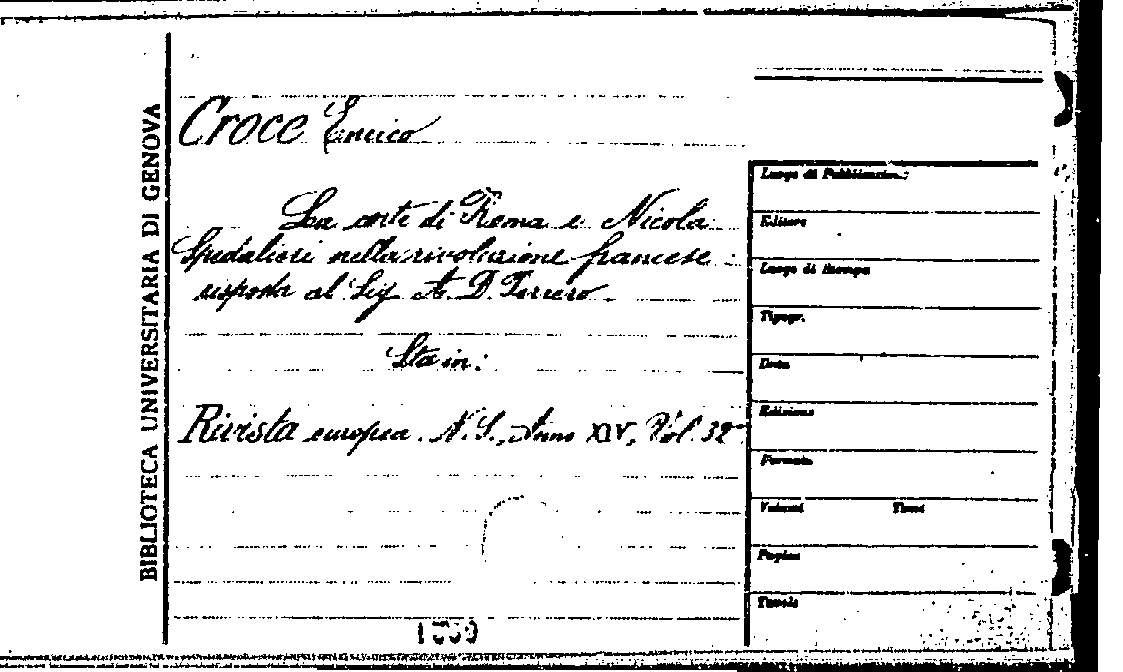 BIBLIOTECA UNIVERSITARIA DI GENOVA
Croce Enrico
La corte di Roma e Nicola
Spedalieri nella rivoluzione francese :
risposta al Sig. A. D. Perrero
Sta in:
Rivista europea. N. S., Anno XIV, Vol. 32°
Luogo di Pubblicazion.:
Editore
Luogo di stampa
Tipogr.
Data
Edizione
Formato
Volumi Tomi
Pagine
Tavole